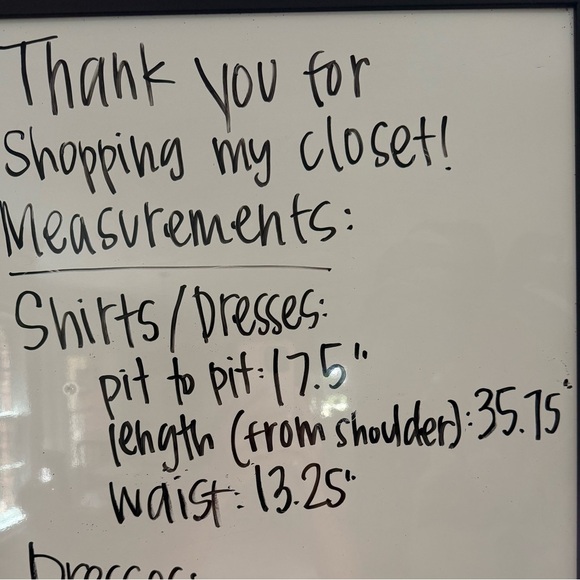 Thank you for
Shopping my closet!
Measurements:
Shirts/Dresses:
pit to pit: 17.5"
length (from shoulder): 35.75"
waist: 13.25"
Dresses: